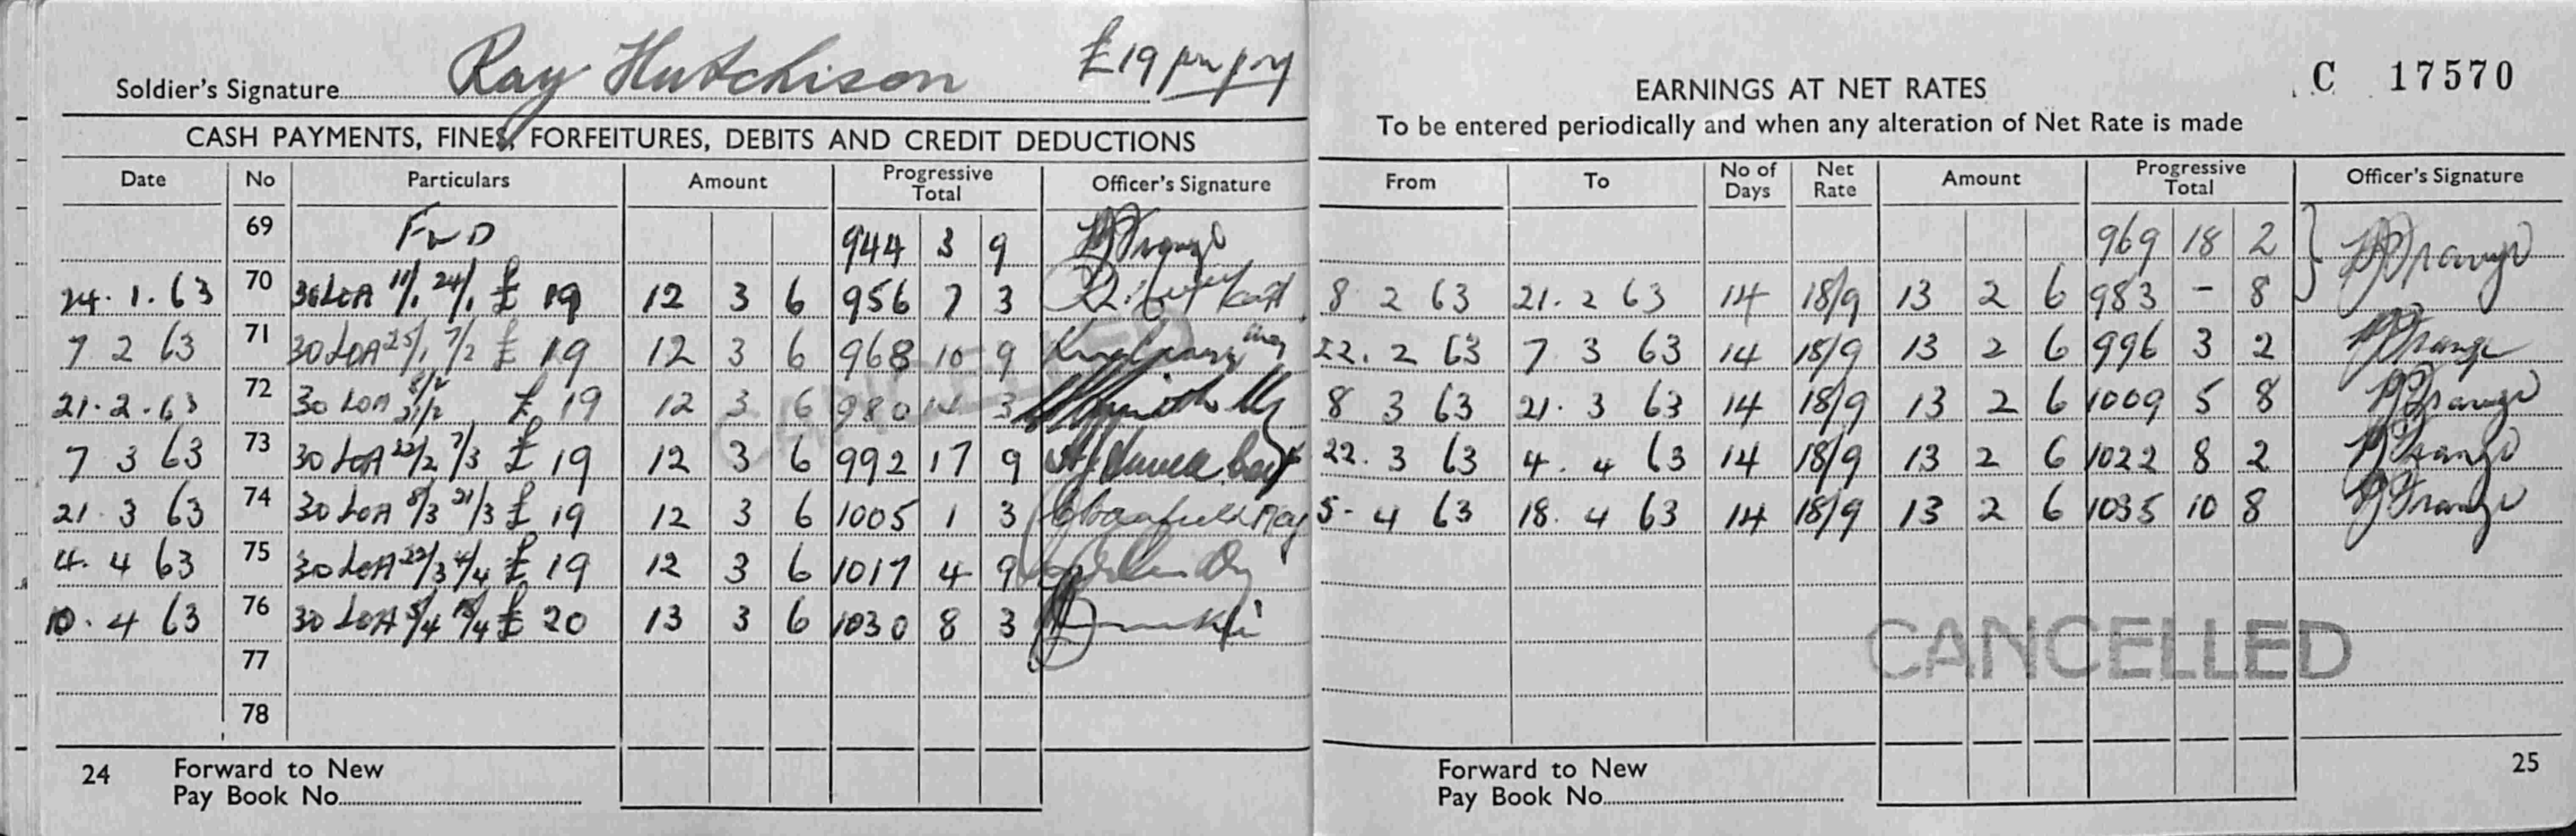 Soldier's Signature Ray Hutchison £19 per pay
CASH PAYMENTS, FINES, FORFEITURES, DEBITS AND CREDIT DEDUCTIONS
Date No Particulars Amount Progressive Total Officer's Signature
69 FWD 944 3 9
24. 1. 63 70 30 LOA 11/1 24/1 £ 19 12 3 6 956 7 3
7 2 63 71 30 LOA 25/1 7/2 £ 19 12 3 6 968 10 9
21. 2. 63 72 30 LOA 8/2 21/2 £ 19 12 3 6 980 14 3
7 3 63 73 30 LOA 22/2 7/3 £ 19 12 3 6 992 17 9
21 3 63 74 30 LOA 8/3 21/3 £ 19 12 3 6 1005 1 3
4. 4 63 75 30 LOA 22/3 4/4 £ 19 12 3 6 1017 4 9
10. 4 63 76 30 LOA 5/4 18/4 £ 20 13 3 6 1030 8 3
77
78
CANCELLED
24 Forward to New
Pay Book No.
C 17570
EARNINGS AT NET RATES
To be entered periodically and when any alteration of Net Rate is made
From To No of Days Net Rate Amount Progressive Total Officer's Signature
969 18 2
8 2 63 21. 2 63 14 18/9 13 2 6 983 - 8
22. 2 63 7 3 63 14 18/9 13 2 6 996 3 2
8 3 63 21. 3 63 14 18/9 13 2 6 1009 5 8
22. 3 63 4. 4 63 14 18/9 13 2 6 1022 8 2
5- 4 63 18. 4 63 14 18/9 13 2 6 1035 10 8
CANCELLED
Forward to New 25
Pay Book No.